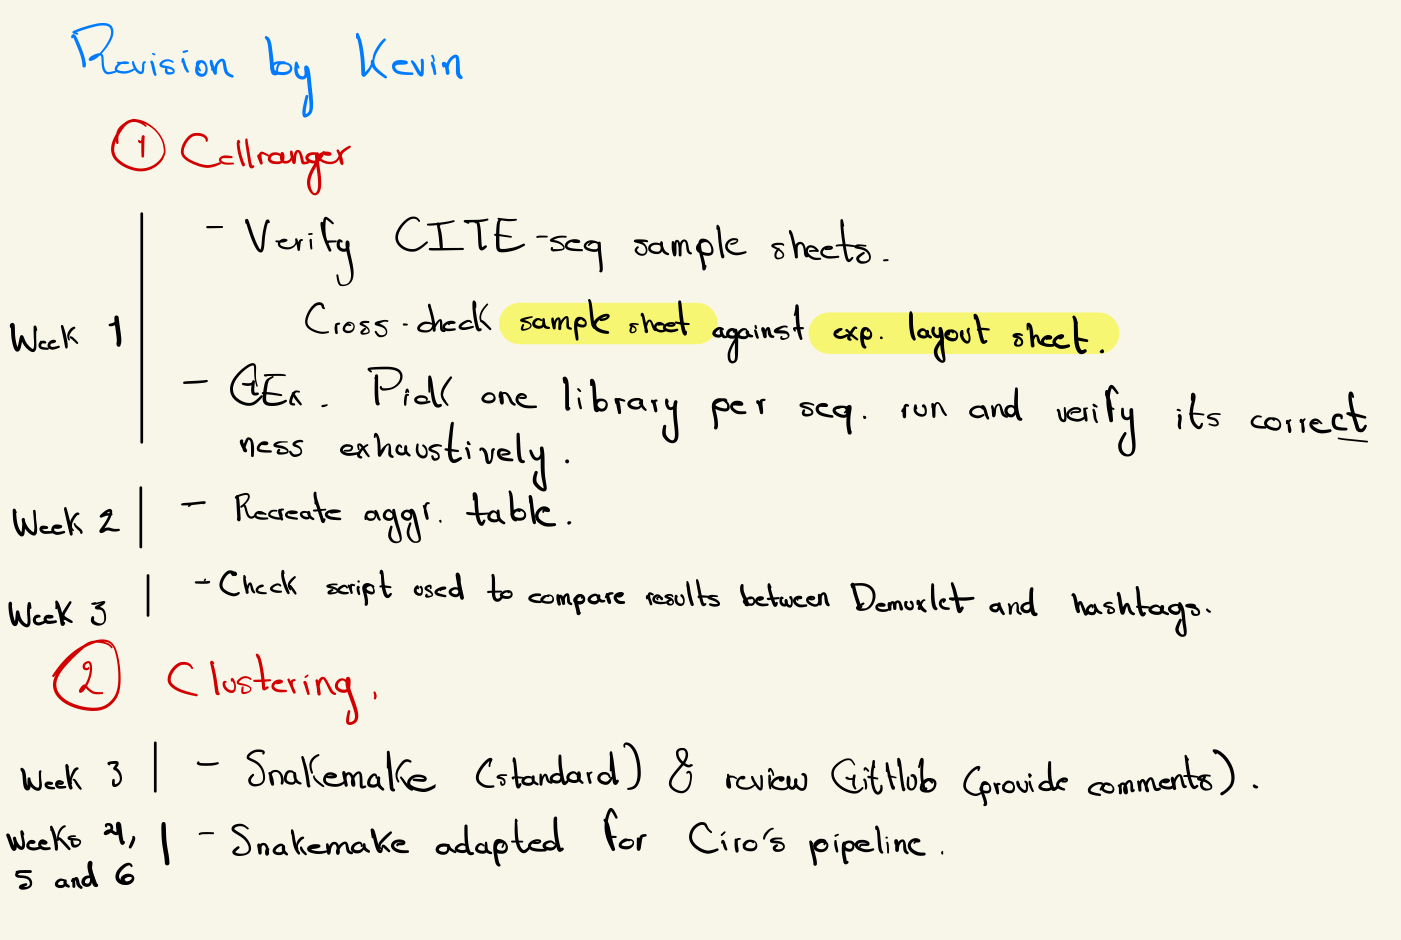 Revision by Kevin
1 Cellranger
- Verify CITE-seq sample sheets.
Week 1
Cross-check sample sheet against exp. layout sheet.
- GEx. Pick one library per seq. run and verify its correct
ness exhaustively.
Week 2 - Recreate aggr. table.
Week 3 - Check script used to compare results between Demuxlet and hashtags.
2 Clustering.
Week 3 - Snakemake (standard) & review GitHub (provide comments).
Weeks 4, - Snakemake adapted for Ciro's pipeline.
5 and 6